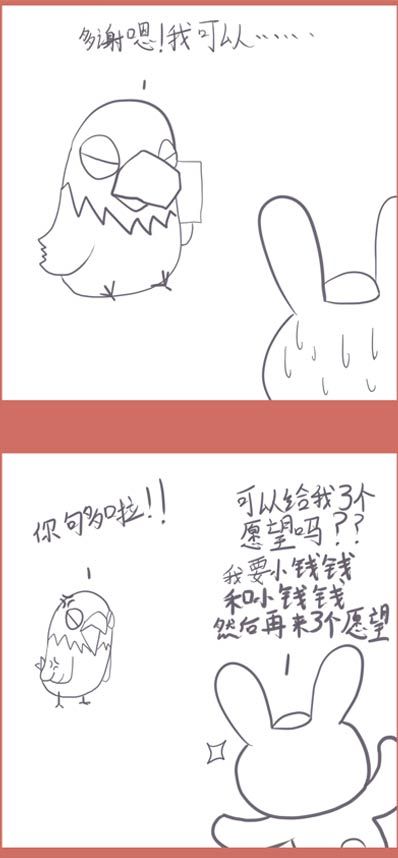 多谢嗯!我可以……
你够多啦!!
可以给我3个
愿望吗??
我要小钱钱
和小钱钱
然后再来3个愿望